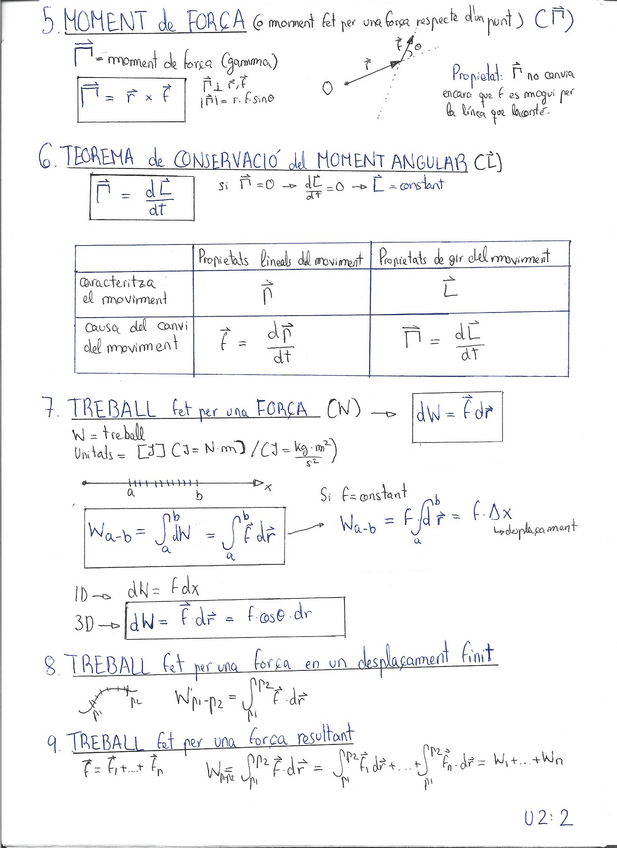 5. MOMENT de FORÇA (o moment fet per una força respecte d'un punt) (Γ⃗)
Γ⃗ = moment de força (gamma)
Γ⃗ = r⃗ × F⃗
Γ⃗ ⊥ r⃗, F⃗
|Γ⃗| = r · F sinθ
O r⃗ F⃗ θ
Propietat: Γ⃗ no canvia
encara que F es mogui per
la línea que
6. TEOREMA de CONSERVACIÓ del MOMENT ANGULAR (L⃗)
Γ⃗ = dL⃗/dt
si Γ⃗ = 0 → dL⃗/dt = 0 → L⃗ = constant
Propietats lineals del moviment
Propietats de gir del moviment
caracteritza
el moviment
p⃗
L⃗
causa del canvi
del moviment
F⃗ = dp⃗/dt
Γ⃗ = dL⃗/dt
7. TREBALL fet per una FORÇA (W) → dW = F⃗ dr⃗
W = treball
Unitats = [J] (J = N·m) / (J = kg·m²/s²)
a b x
W a-b = ∫ₐᵇ dW = ∫ₐᵇ F⃗ dr⃗
Si F = constant
W a-b = F · ∫ₐᵇ dr⃗ = F · Δx
↳ desplaçament
1D → dW = F dx
3D → dW = F⃗ · dr⃗ = F · cosθ · dr
8. TREBALL fet per una força en un desplaçament finit
p1 p2
W p1-p2 = ∫p1 p2 F⃗ · dr⃗
9. TREBALL fet per una força resultant
F⃗ = F⃗1 + ... + F⃗n
W p1-p2 = ∫p1 p2 F⃗ · dr⃗ = ∫p1 p2 F⃗1 dr⃗ + ... + ∫p1 p2 F⃗n · dr⃗ = W1 + ... + Wn
U2: 2